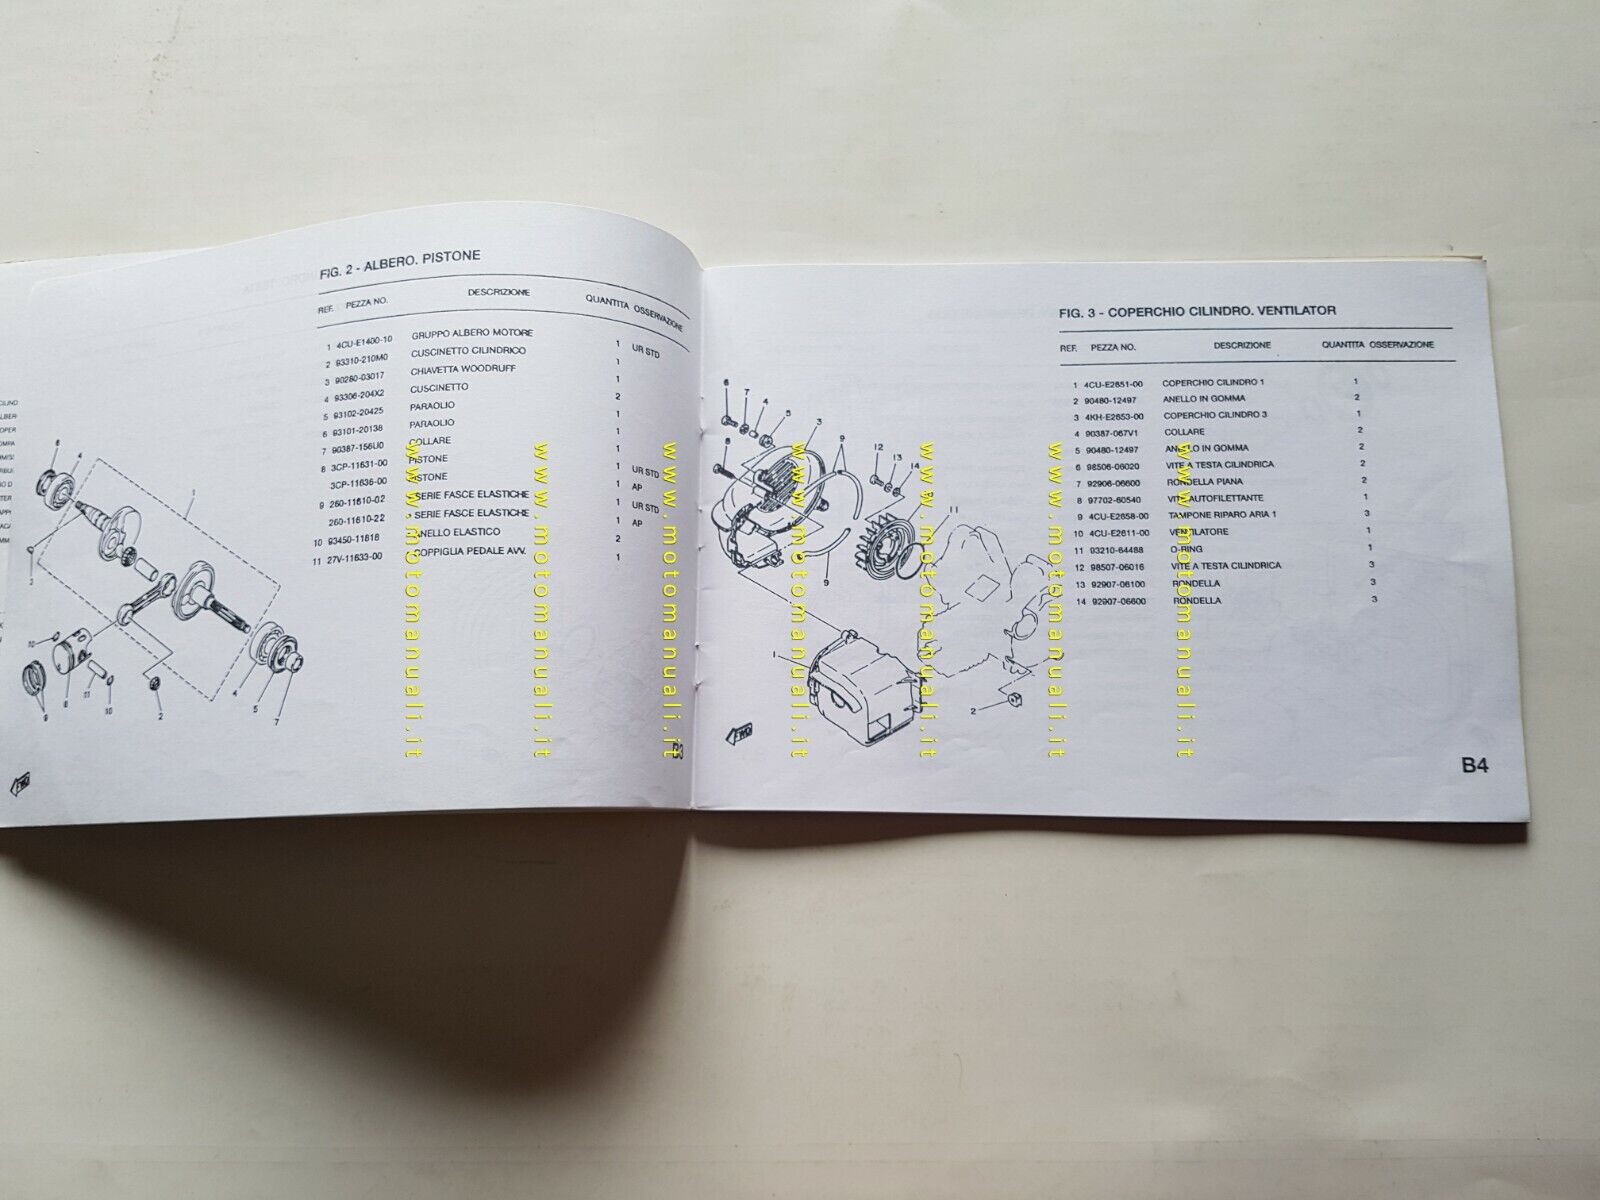 FIG. 2 - ALBERO. PISTONE
REF. PEZZA NO. DESCRIZIONE QUANTITA OSSERVAZIONE
1 4CU-E1400-10 GRUPPO ALBERO MOTORE 1 UR STD
2 93310-210M0 CUSCINETTO CILINDRICO 1
3 90280-03017 CHIAVETTA WOODRUFF 1
4 93306-204X2 CUSCINETTO 2
5 93102-20425 PARAOLIO 1
6 93101-20138 PARAOLIO 1
7 90387-156U0 COLLARE 1
8 3CP-11631-00 PISTONE 1 UR STD
3CP-11636-00 PISTONE 1 AP
9 260-11610-02 SERIE FASCE ELASTICHE 1 UR STD
260-11610-22 SERIE FASCE ELASTICHE 1 AP
10 93450-11818 ANELLO ELASTICO 2
11 27V-11633-00 COPPIGLIA PEDALE AVV. 1
6
4
1
3
10
9
8
11
10
2
4
5
7
FWD
B3
FIG. 3 - COPERCHIO CILINDRO. VENTILATOR
REF. PEZZA NO. DESCRIZIONE QUANTITA OSSERVAZIONE
1 4CU-E2651-00 COPERCHIO CILINDRO 1 1
2 90480-12497 ANELLO IN GOMMA 2
3 4KH-E2653-00 COPERCHIO CILINDRO 3 1
4 90387-067V1 COLLARE 2
5 90480-12497 ANELLO IN GOMMA 2
6 98506-06020 VITE A TESTA CILINDRICA 2
7 92906-06600 RONDELLA PIANA 2
8 97702-60540 VITE AUTOFILETTANTE 1
9 4CU-E2658-00 TAMPONE RIPARO ARIA 1 3
10 4CU-E2611-00 VENTILATORE 1
11 93210-64488 O-RING 1
12 98507-06016 VITE A TESTA CILINDRICA 3
13 92907-06100 RONDELLA 3
14 92907-06600 RONDELLA 3
6
7
4
5
3
9
12
13
14
8
11
9
1
2
FWD
B4
www.motomanuali.it
www.motomanuali.it
www.motomanuali.it
www.motomanuali.it
www.motomanuali.it
www.motomanuali.it
www.motomanuali.it